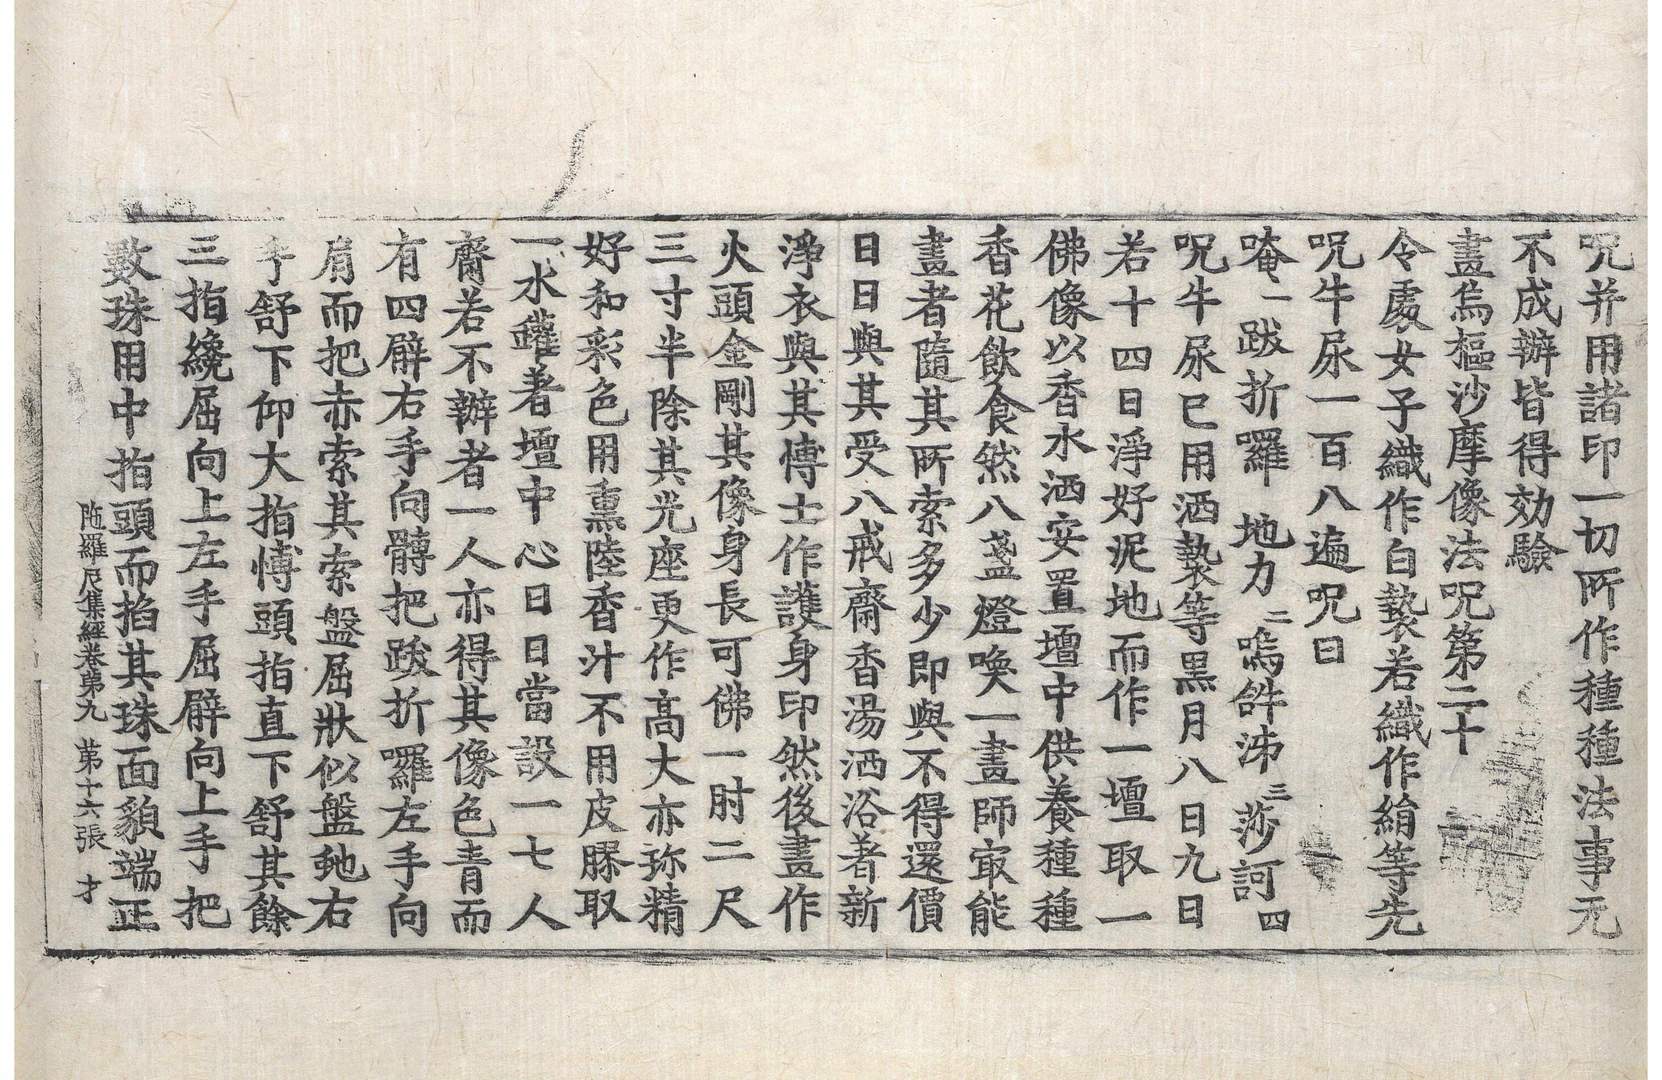 呪并用諸印一切所作種種法事无
不成辦皆得効驗
畫烏樞沙摩像法呪第二十
令處女子織作白㲲若織作絹等先
呪牛尿一百八遍呪曰
唵一跋折囉 地力二嗚𤙖沛三莎訶四
呪牛尿已用洒㲲等黒月八日九日
若十四日淨好泥地而作一壇取一
佛像以香水洒安置壇中供養種種
香花飲食然八盞燈喚一畫師㝡能
畫者隨其所索多少即與不得還價
日日與其受八戒齋香湯洒浴著新
淨衣與其博士作護身印然後畫作
火頭金剛其像身長可佛一肘二尺
三寸半除其光座更作高大亦弥精
好和彩色用熏陸香汁不用皮膠取
一水鑵著壇中心日日當設一七人
齋若不辦者一人亦得其像色青而
有四臂右手向髆把跋折囉左手向
肩而把赤索其索盤屈狀似盤虵右
手舒下仰大指博頭指直下舒其餘
三指纔屈向上左手屈臂向上手把
數珠用中指頭而掐其珠面貌端正
陁羅尼集經卷第九 第十六張 才